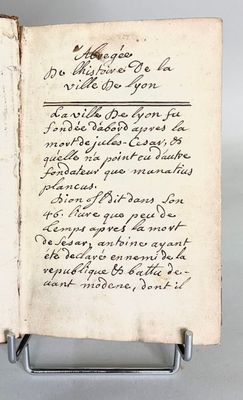 Abregée
De l'histoire De la
ville De Lyon
La ville De lyon fu
fondée d'abord apres la
mort de jules-Cesar, &
quelle n'a point eu d'autre
fondateur que munatius
plancus.
Dion dit dans son
46. livre que peu de
temps apres la mort
de Sesar, antoine ayant
été declaré ennemi de la
republique & battu de-
vant modene, dont il